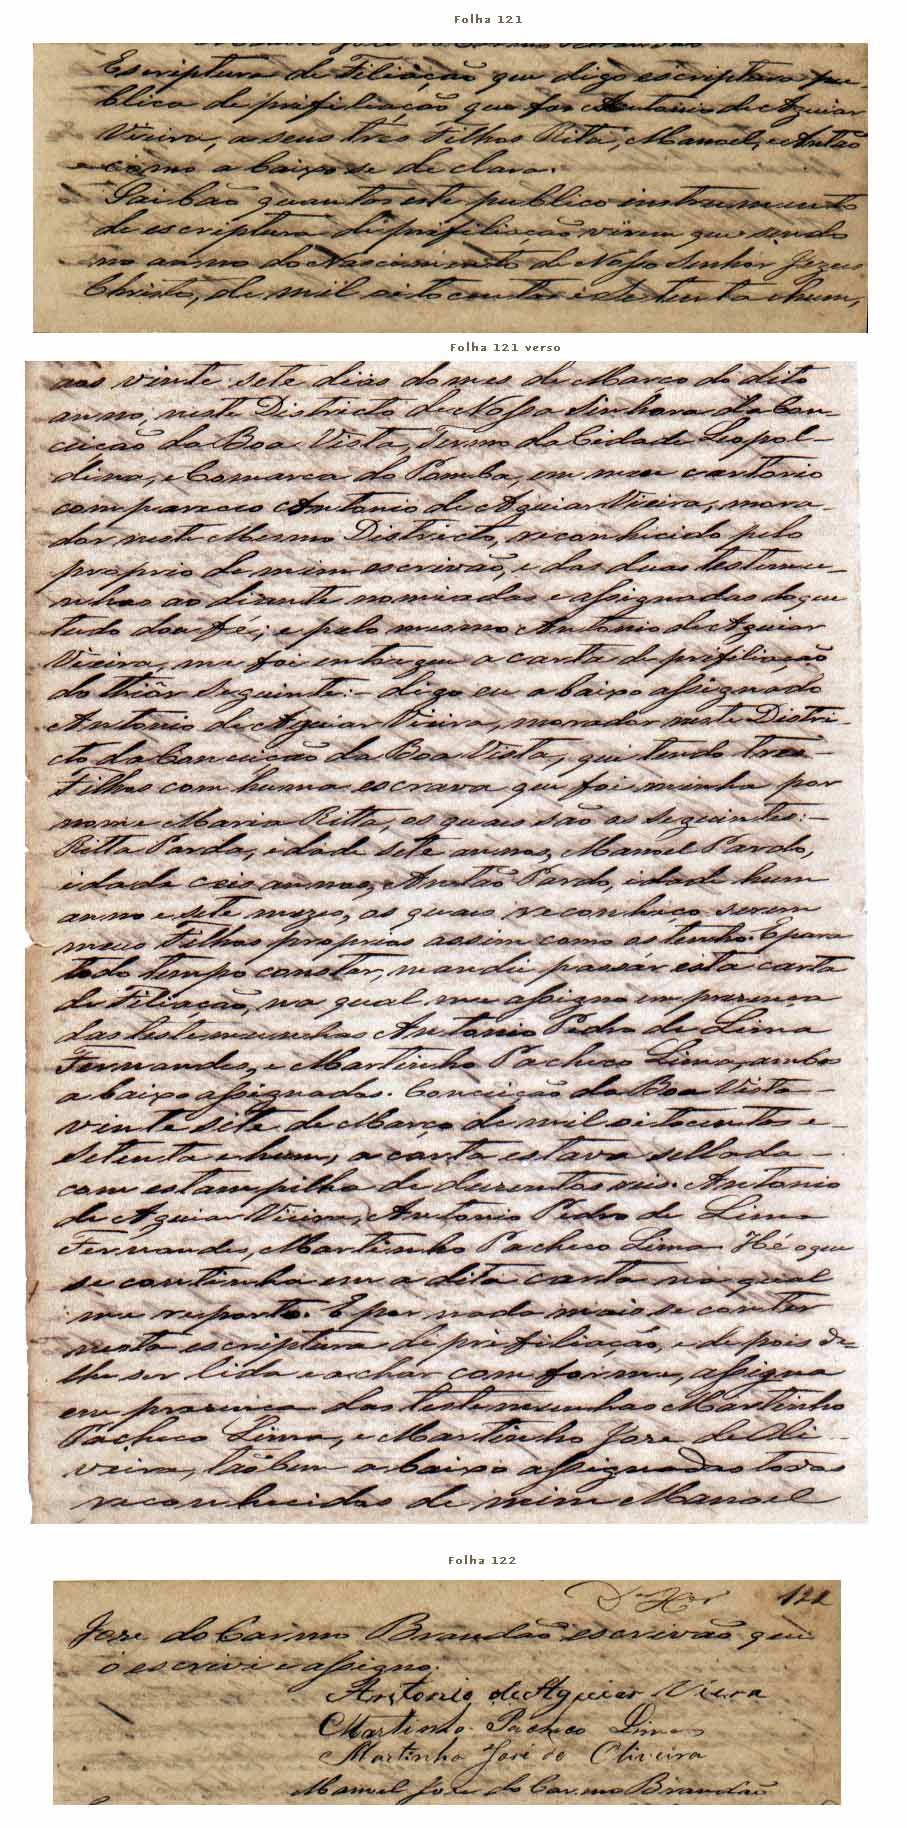 Folha 121
Escriptura de Filiação que digo escriptura pu-
blica de prifiliação que faz Antonio de Aguiar
Vieira, a seus três Filhos Rita, Manoel, e Antão
como a baixo se de clara.
Sai bão quantos este publico instrumento
de escriptura de prifiliação virem que sendo
no anno do Nascimento de Nosso Senhor Jezus
Christo, de mil oito centos e setenta e hum,
Folha 121 verso
aos vinte sete dias do mes de Marco do dito
anno, neste Districto de Nossa Sinhora da Con-
ceicão da Boa Vista, Termo da Cidade Leopol-
dina, e Comarca do Pomba, em meu cartorio
compareceo Antonio de Aguiar Vieira, mora-
dor neste Mesmo Districto, reconhicido pelo
proprio de mim escrivão, e das duas testemu-
nhas ao diante nomiadas e assignadas do que
tudo dou fé; e pelo mesmo Antonio de Aguiar
Vieira, me foi entregue a carta de prifiliação
do thiôr Seguinte:- digo eu abaixo assignado
Antonio de Aguiar Vieira, morador neste Distri-
cto da Conceicão da Boa Vista, que tendo tres-
Filhos com huma escrava que foi minha por
nome Maria Ritta, os quais são os seguintes:-
Ritta Parda, idade sete annos, Manoel Pardo,
idade ceis annos, Antão Pardo, idade hum
anno e sete mezes, os quais reconheço serem
meus Filhos proprios assim como os tenho. E para
todo tempo constar, mandei passar esta carta
de Filiação, na qual me assigno em prezença
das testemunhas Antonio Pedro de Lima
Fernandes, e Martinho Pacheco Lima, ambos
a baixo assignados. Conceicão da Boa Vista-
vinte sete de Março de mil oitocentos e-
setenta e hum, a carta estava sellada-
com estampilha de duzentos reis. Antonio
de Aguiar Vieira, Antonio Pedro de Lima
Fernandes, Martinho Pacheco Lima. Hé o que
se continha em a dita carta na qual
me reporto. E por nada mais se conter
nesta escriptura de prifiliação, e depois de-
lhe ser lida e achar comforme, assigna
em prezenca das testemunhas Martinho
Pacheco Lima, e Martinho Joze de Oli-
veira, tãobem abaixo assignados todos
reconhecidos de mim Manoel
Folha 122
122
Joze do Carmo Brandão escrivão que
o escrivi e assigno.
Antonio de Aguiar Vieira
Martinho Pacheco Lima
Martinho José de Oliveira
Manoel Joze do Carmo Brandão